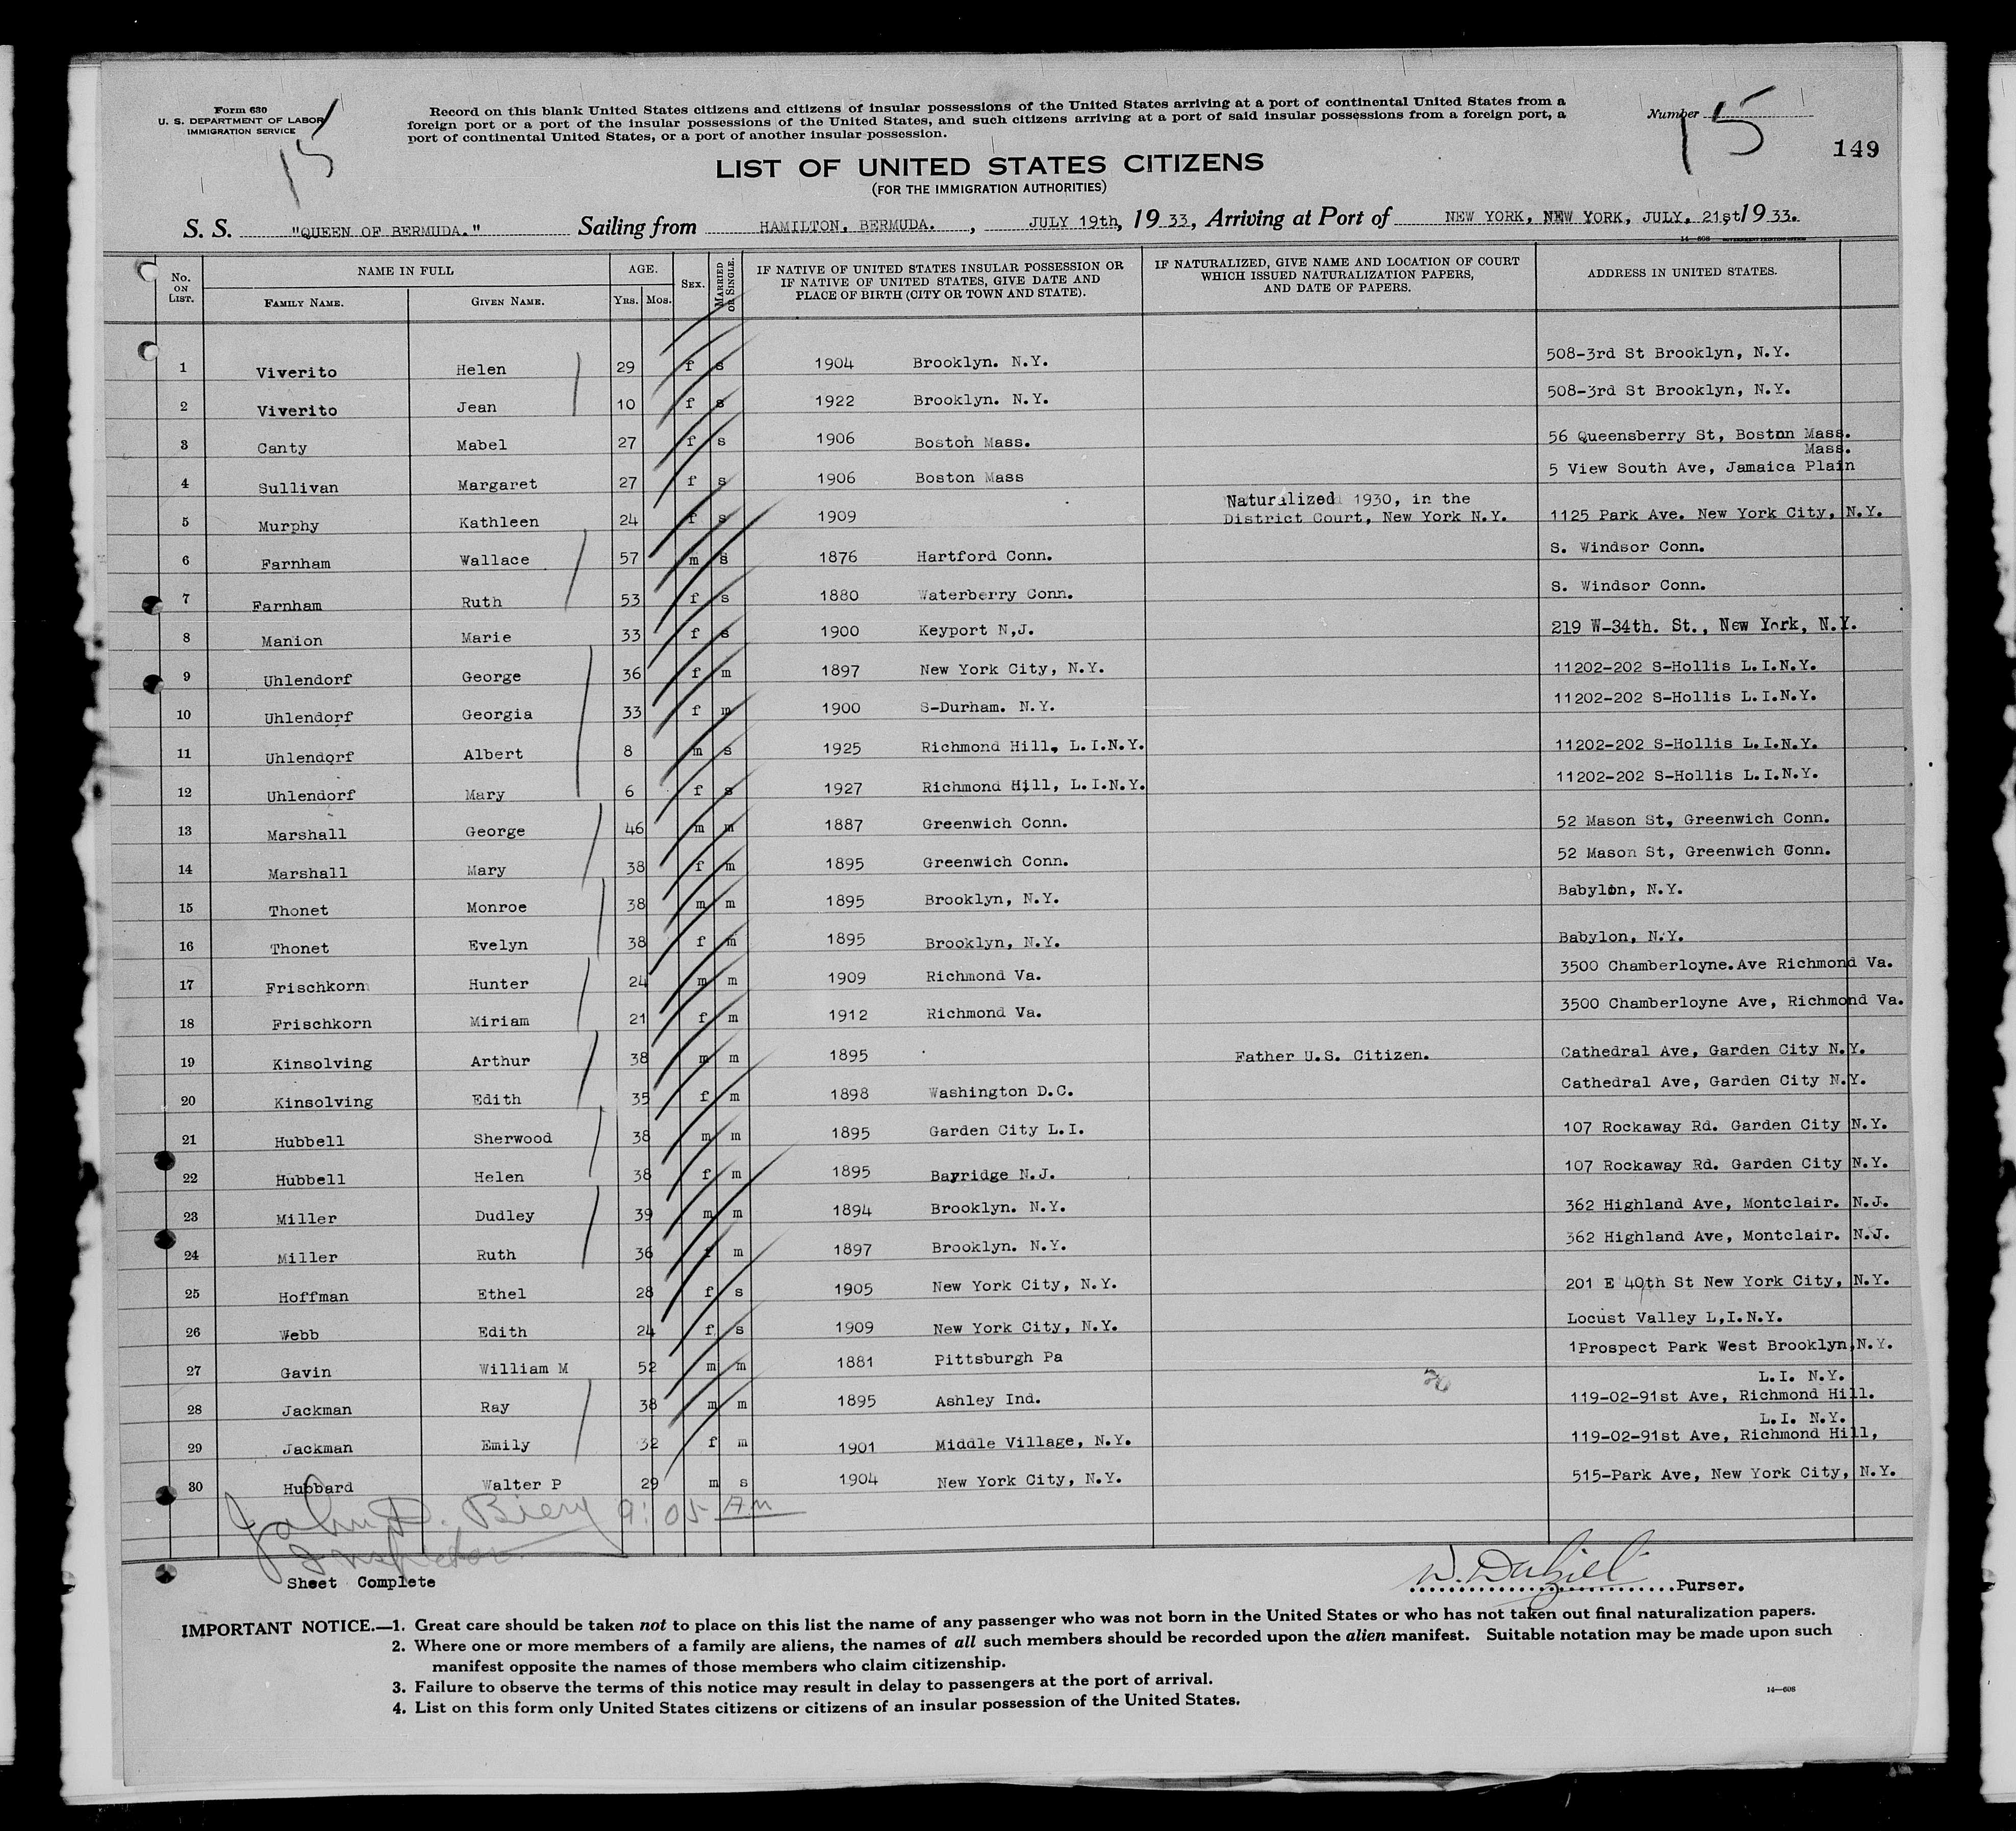 Form 630
U. S. DEPARTMENT OF LABOR
IMMIGRATION SERVICE
15
Record on this blank United States citizens and citizens of insular possessions of the United States arriving at a port of continental United States from a
foreign port or a port of the insular possessions of the United States, and such citizens arriving at a port of said insular possessions from a foreign port, a
port of continental United States, or a port of another insular possession.
Number 15
149
LIST OF UNITED STATES CITIZENS
(FOR THE IMMIGRATION AUTHORITIES)
S. S. "QUEEN OF BERMUDA." Sailing from HAMILTON, BERMUDA. , JULY 19th, 1933, Arriving at Port of NEW YORK, NEW YORK, JULY. 21st 1933.
14—608 GOVERNMENT PRINTING OFFICE
No. ON LIST. NAME IN FULL AGE. SEX. MARRIED OR SINGLE. IF NATIVE OF UNITED STATES INSULAR POSSESSION OR IF NATIVE OF UNITED STATES, GIVE DATE AND PLACE OF BIRTH (CITY OR TOWN AND STATE). IF NATURALIZED, GIVE NAME AND LOCATION OF COURT WHICH ISSUED NATURALIZATION PAPERS, AND DATE OF PAPERS. ADDRESS IN UNITED STATES.
FAMILY NAME. GIVEN NAME. YRS. MOS.
1 Viverito Helen 29 f s 1904 Brooklyn. N.Y. 508-3rd St Brooklyn, N.Y.
2 Viverito Jean 10 f s 1922 Brooklyn. N.Y. 508-3rd St Brooklyn, N.Y.
3 Canty Mabel 27 f s 1906 Boston Mass. 56 Queensberry St, Boston Mass.
Mass.
4 Sullivan Margaret 27 f s 1906 Boston Mass 5 View South Ave, Jamaica Plain
Naturalized 1930, in the
5 Murphy Kathleen 24 f s 1909 District Court, New York N.Y. 1125 Park Ave. New York City, N.Y.
6 Farnham Wallace 57 m s 1876 Hartford Conn. S. Windsor Conn.
7 Farnham Ruth 53 f s 1880 Waterberry Conn. S. Windsor Conn.
8 Manion Marie 33 f s 1900 Keyport N,J. 219 W-34th. St., New York, N.Y.
9 Uhlendorf George 36 f m 1897 New York City, N.Y. 11202-202 S-Hollis L.I.N.Y.
10 Uhlendorf Georgia 33 f m 1900 S-Durham. N.Y. 11202-202 S-Hollis L.I.N.Y.
11 Uhlendorf Albert 8 m s 1925 Richmond Hill, L.I.N.Y. 11202-202 S-Hollis L.I.N.Y.
12 Uhlendorf Mary 6 f s 1927 Richmond Hill, L.I.N.Y. 11202-202 S-Hollis L.I.N.Y.
13 Marshall George 46 m m 1887 Greenwich Conn. 52 Mason St, Greenwich Conn.
14 Marshall Mary 38 f m 1895 Greenwich Conn. 52 Mason St, Greenwich Conn.
15 Thonet Monroe 38 m m 1895 Brooklyn, N.Y. Babylon, N.Y.
16 Thonet Evelyn 38 f m 1895 Brooklyn, N.Y. Babylon, N.Y.
17 Frischkorn Hunter 24 m m 1909 Richmond Va. 3500 Chamberloyne.Ave Richmond Va.
18 Frischkorn Miriam 21 f m 1912 Richmond Va. 3500 Chamberloyne Ave, Richmond Va.
19 Kinsolving Arthur 38 m m 1895 Father U.S. Citizen. Cathedral Ave, Garden City N.Y.
20 Kinsolving Edith 35 f m 1898 Washington D.C. Cathedral Ave, Garden City N.Y.
21 Hubbell Sherwood 38 m m 1895 Garden City L.I. 107 Rockaway Rd. Garden City N.Y.
22 Hubbell Helen 38 f m 1895 Bayridge N.J. 107 Rockaway Rd. Garden City N.Y.
23 Miller Dudley 39 m m 1894 Brooklyn. N.Y. 362 Highland Ave, Montclair. N.J.
24 Miller Ruth 36 f m 1897 Brooklyn. N.Y. 362 Highland Ave, Montclair. N.J.
25 Hoffman Ethel 28 f s 1905 New York City, N.Y. 201 E 40th St New York City, N.Y.
26 Webb Edith 24 f s 1909 New York City, N.Y. Locust Valley L,I.N.Y.
27 Gavin William M 52 m m 1881 Pittsburgh Pa 1Prospect Park West Brooklyn,N.Y.
L.I. N.Y.
28 Jackman Ray 38 m m 1895 Ashley Ind. 119-02-91st Ave, Richmond Hill.
L.I. N.Y.
29 Jackman Emily 32 f m 1901 Middle Village, N.Y. 119-02-91st Ave, Richmond Hill,
30 Hubbard Walter P 29 m s 1904 New York City, N.Y. 515-Park Ave, New York City, N.Y.
John D. Biery 9:05 AM
Inspector
Sheet Complete
W. Dalziel Purser.
IMPORTANT NOTICE.—1. Great care should be taken not to place on this list the name of any passenger who was not born in the United States or who has not taken out final naturalization papers.
2. Where one or more members of a family are aliens, the names of all such members should be recorded upon the alien manifest. Suitable notation may be made upon such
manifest opposite the names of those members who claim citizenship.
3. Failure to observe the terms of this notice may result in delay to passengers at the port of arrival.
4. List on this form only United States citizens or citizens of an insular possession of the United States.
14—608